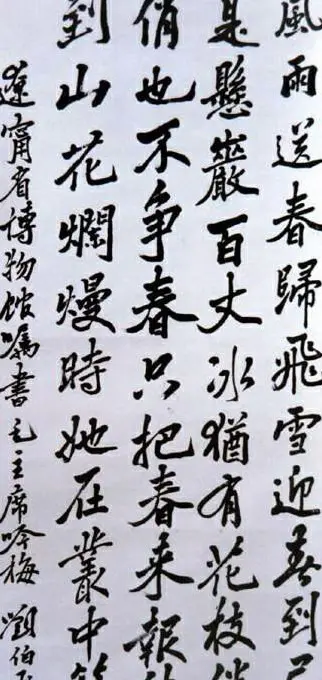 風雨送春歸飛雪迎春到已
是懸巖百丈冰猶有花枝俏
俏也不争春只把春来報
到山花爛熳時她在叢中笑
遼甯省博物館囑書毛主席咏梅 劉伯